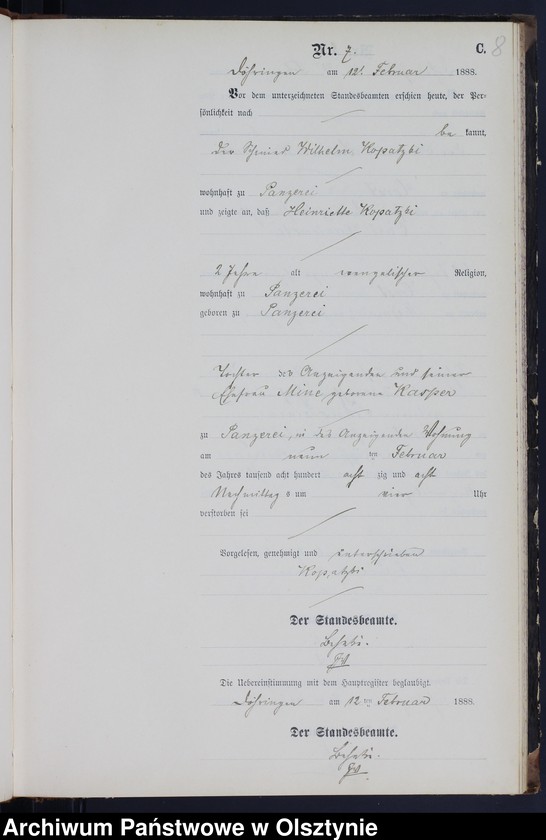 Nr. 7.
C. 8
Döhringen am 12. Februar 1888.
Vor dem unterzeichneten Standesbeamten erschien heute, der Per-
sönlichkeit nach
be kannt,
der Schmied Wilhelm Kopatzki
wohnhaft zu Panzerei
und zeigte an, daß Heinriette Kopatzki
2 Jahre alt evangelischer Religion,
wohnhaft zu Panzerei
geboren zu Panzerei
Tochter des Anzeigenden und seiner
Ehefrau Mine geborene Kasper
zu Panzerei, in des Anzeigenden Wohnung
am neun ten Februar
des Jahres tausend acht hundert acht zig und acht
Nachmittags um vier Uhr
verstorben sei
Vorgelesen, genehmigt und unterschrieben
Kopatzki
Der Standesbeamte.
Die Uebereinstimmung mit dem Hauptregister beglaubigt.
Döhringen am 12 ten Februar 1888.
Der Standesbeamte.
Archiwum Państwowe w Olsztynie